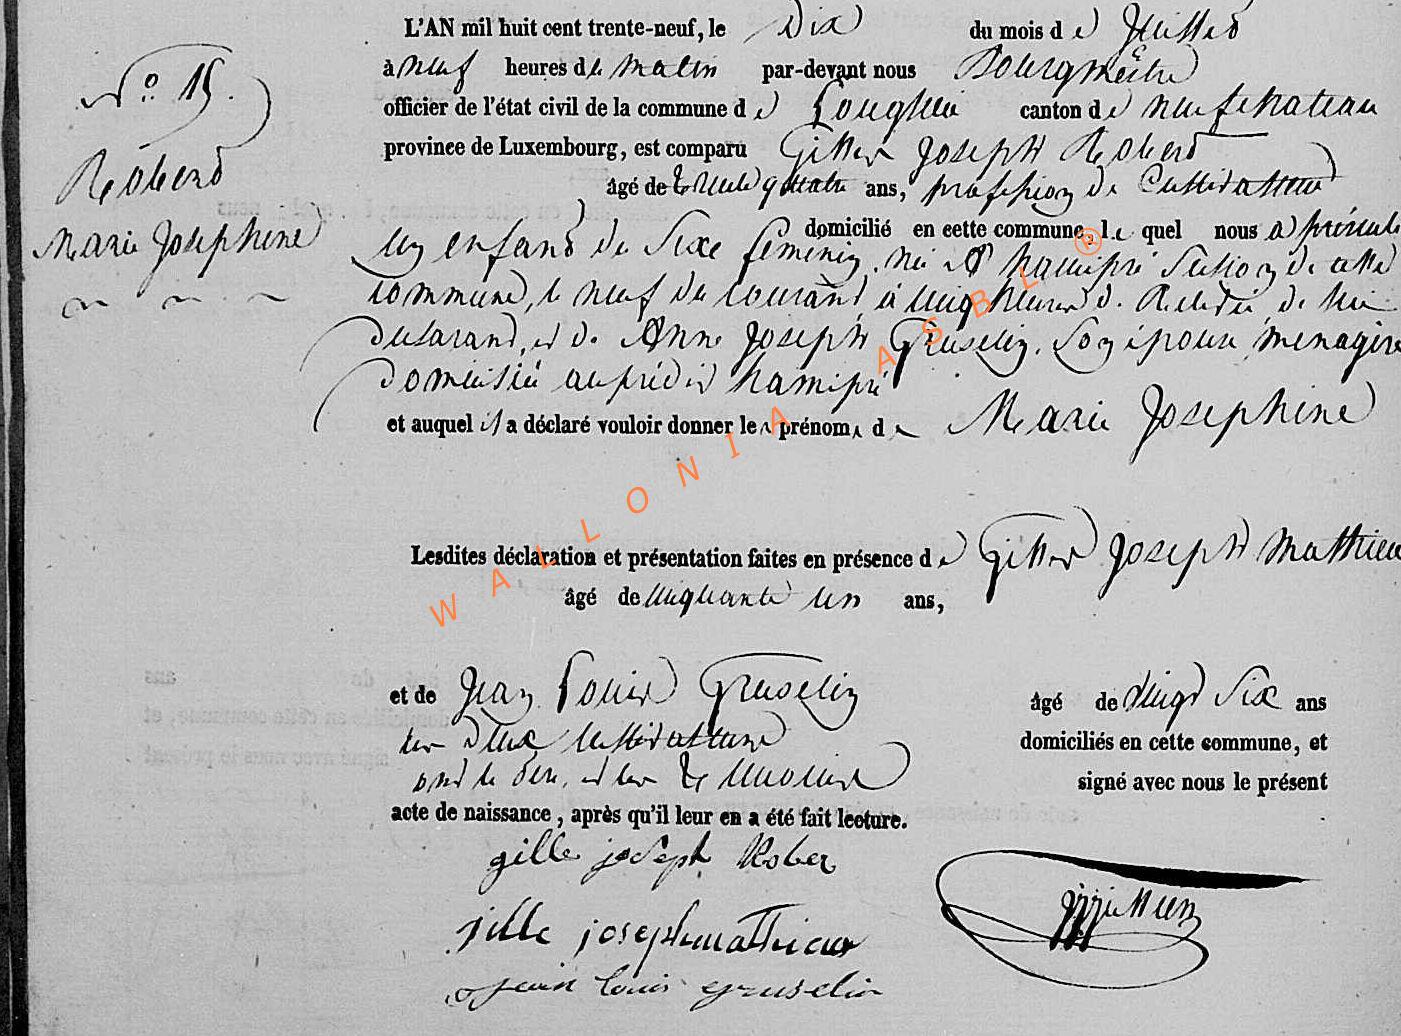 L'AN mil huit cent trente-neuf, le Dix du mois de Juillet
à neuf heures du matin par-devant nous Bourgmestre
officier de l'état civil de la commune de Longlier canton de neufchateau
province de Luxembourg, est comparu Gilles Joseph Roberd
âgé de trente quatre ans, profession de Cultivateur
domicilié en cette commune, le quel nous a présenté
un enfand de Sexe feminin, né à hamipré Section de cette
commune, le neuf du courand, à cinq heures de Relevée, de lui
declarand, et de Anne Joseph Gruselin, Son épouse, menagère
domiciliée au prédit hamipré
et auquel il a déclaré vouloir donner les prénoms de Marie Josephine
N.° 15.
Roberd
Marie Josephine
Lesdites déclaration et présentation faites en présence de Gilles Joseph Mathieu
âgé de cinquante un ans,
et de Jean Louis Gruselin âgé de vingt Six ans
les deux cultivateurs domiciliés en cette commune, et
ond le père, et les témoins signé avec nous le présent
acte de naissance, après qu'il leur en a été fait lecture.
gille joseph Rober
gille joseph mathieu
jean louis gruselin
WALLONIA ASBL ®